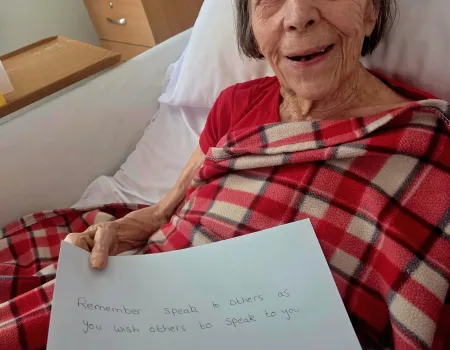 Remember speak to others as
you wish others to speak to you